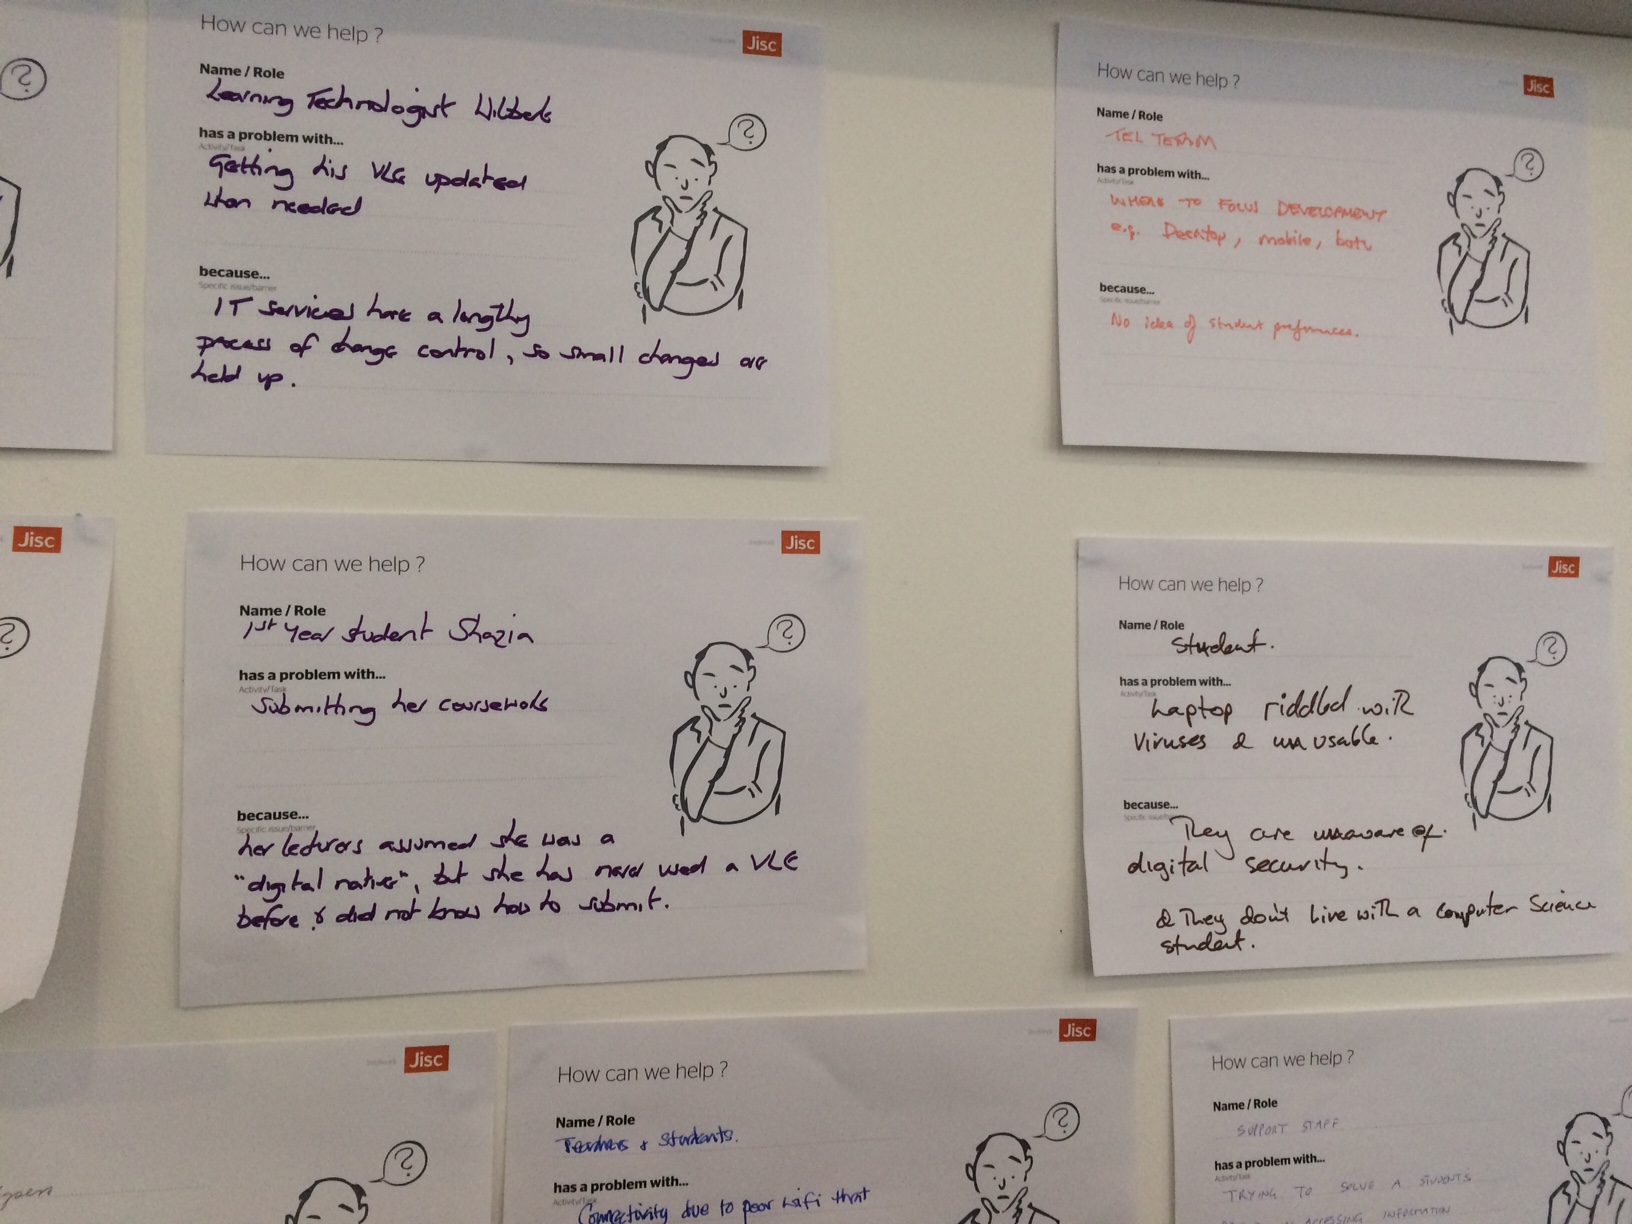 How can we help ?
Jisc
Name / Role
Learning Technologist Wilbert
has a problem with...
Activity/Task
Getting his VLE updated
when needed
because...
Specific issue/barrier
IT services have a lengthy
process of change control, so small changes are
held up.
How can we help ?
Jisc
Name / Role
TEL TEAM
has a problem with...
Activity/Task
WHERE TO FOCUS DEVELOPMENT
e.g. Desktop, mobile, both
because...
Specific issue/barrier
No idea of student preferences.
Jisc
How can we help ?
Jisc
Name / Role
1st Year student Shazia
has a problem with...
Activity/Task
Submitting her coursework
because...
Specific issue/barrier
her lecturers assumed she was a
"digital native", but she has never used a VLE
before & did not know how to submit.
How can we help ?
Jisc
Name / Role
Student.
has a problem with...
Activity/Task
Laptop riddled with
Viruses & unusable.
because...
They are unaware of
digital security.
& They don't live with a Computer Science
student.
Jisc
How can we help ?
Jisc
Name / Role
Teachers & Students.
has a problem with...
Activity/Task
Connectivity due to poor wifi that
How can we help ?
Name / Role
SUPPORT STAFF
has a problem with...
Activity/Task
TRYING TO SOLVE A STUDENTS
ACCESSING INFORMATION